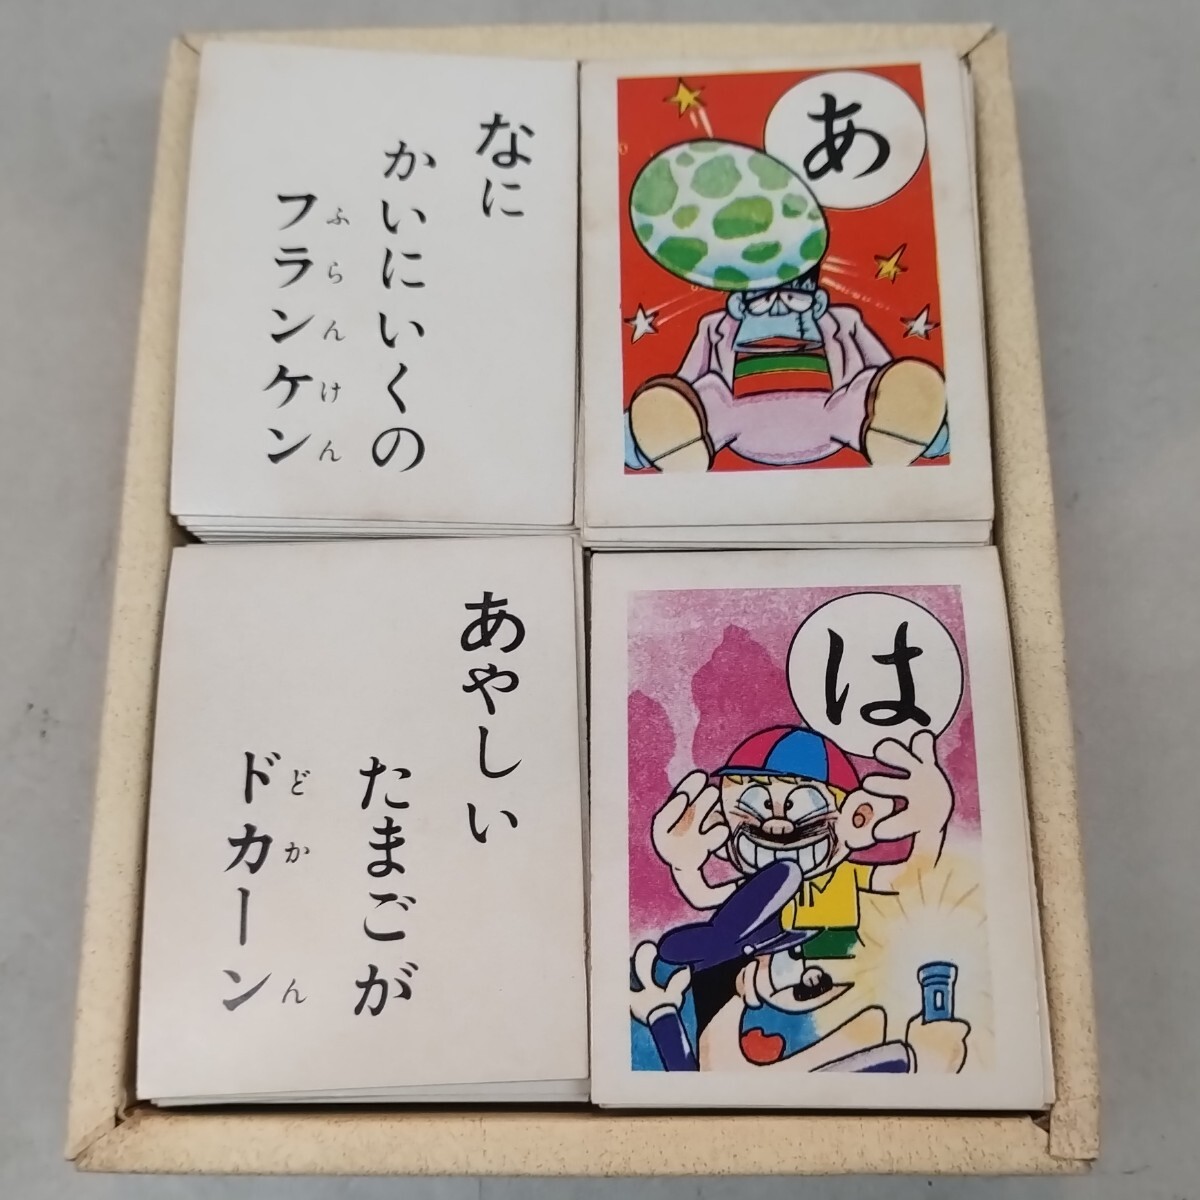 なに
かいにいくの
フランケン
ふらんけん
あ
あやしい
たまごが
ドカーン
どかん
は